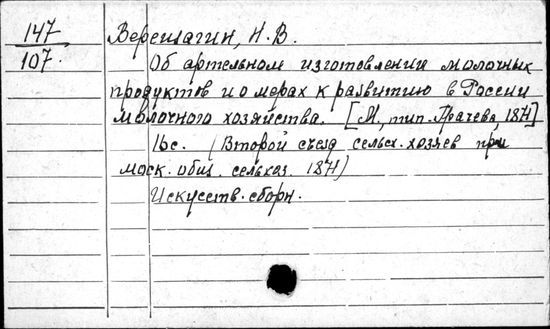 147
107.
Верещагин, Н. В.
Об артельном изготовлении молочных
продуктов и о мерах к развитию в России
молочного хозяйства. [М., тип. Грачева, 1871]
16с. (Второй съезд сельск. хозяев при
моск. общ. сельхоз. 1871)
Искусств. сборн.